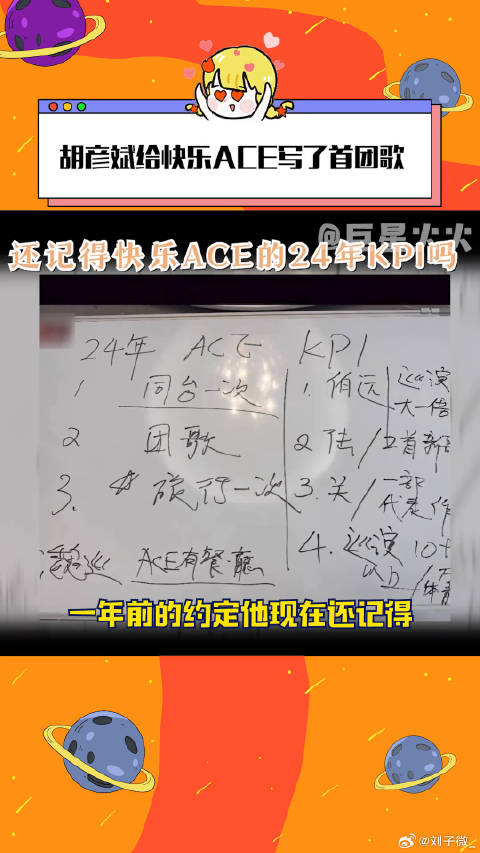 胡彦斌给快乐ACE写了首团歌
@巨星火火
还记得快乐ACE的24年KPI吗
24年 ACE KPI
1 同台一次
2 团歌
3. 旅行一次
ACE有餐廳
1. 伯远 / 巡演
大一倍
2 陆 / 2首新
3. 关 / 一部
代表作
4. 巡演 10+
以上 /
体育
一年前的约定他现在还记得
@刘子微_